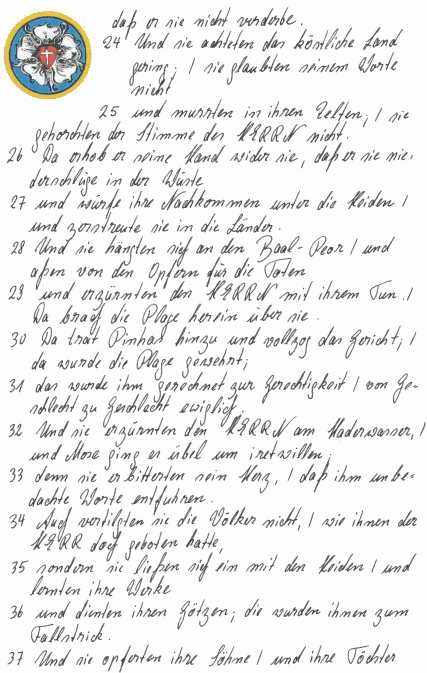 daß er sie nicht verderbe.
24 Und sie achteten das köstliche Land
gering; / sie glaubten seinem Worte
nicht
25 und murrten in ihren Zelten; / sie
gehorchten der Stimme des HERRN nicht.
26 Da erhob er seine Hand wider sie, daß er sie nie-
derschlüge in der Wüste
27 und würfe ihre Nachkommen unter die Heiden /
und zerstreute sie in die Länder.
28 Und sie hängten sich an den Baal-Peor / und
aßen von den Opfern für die Toten
29 und erzürnten den HERRN mit ihrem Tun. /
Da brach die Plage herein über sie.
30 Da trat Pinhas hinzu und vollzog das Gericht; /
da wurde die Plage gewehrt;
31 das wurde ihm gerechnet zur Gerechtigkeit / von Ge-
schlecht zu Geschlecht ewiglich.
32 Und sie erzürnten den HERRN am Haderwasser, /
und Mose ging es übel um iretwillen;
33 denn sie erbitterten sein Herz, / daß ihm unbe-
dachte Worte entfuhren.
34 Auch vertilgten sie die Völker nicht, / wie ihnen der
HERR doch geboten hatte,
35 sondern sie ließen sich ein mit den Heiden / und
lernten ihre Werke
36 und dienten ihren Götzen; die wurden ihnen zum
Fallstrick.
37 Und sie opferten ihre Söhne / und ihre Töchter